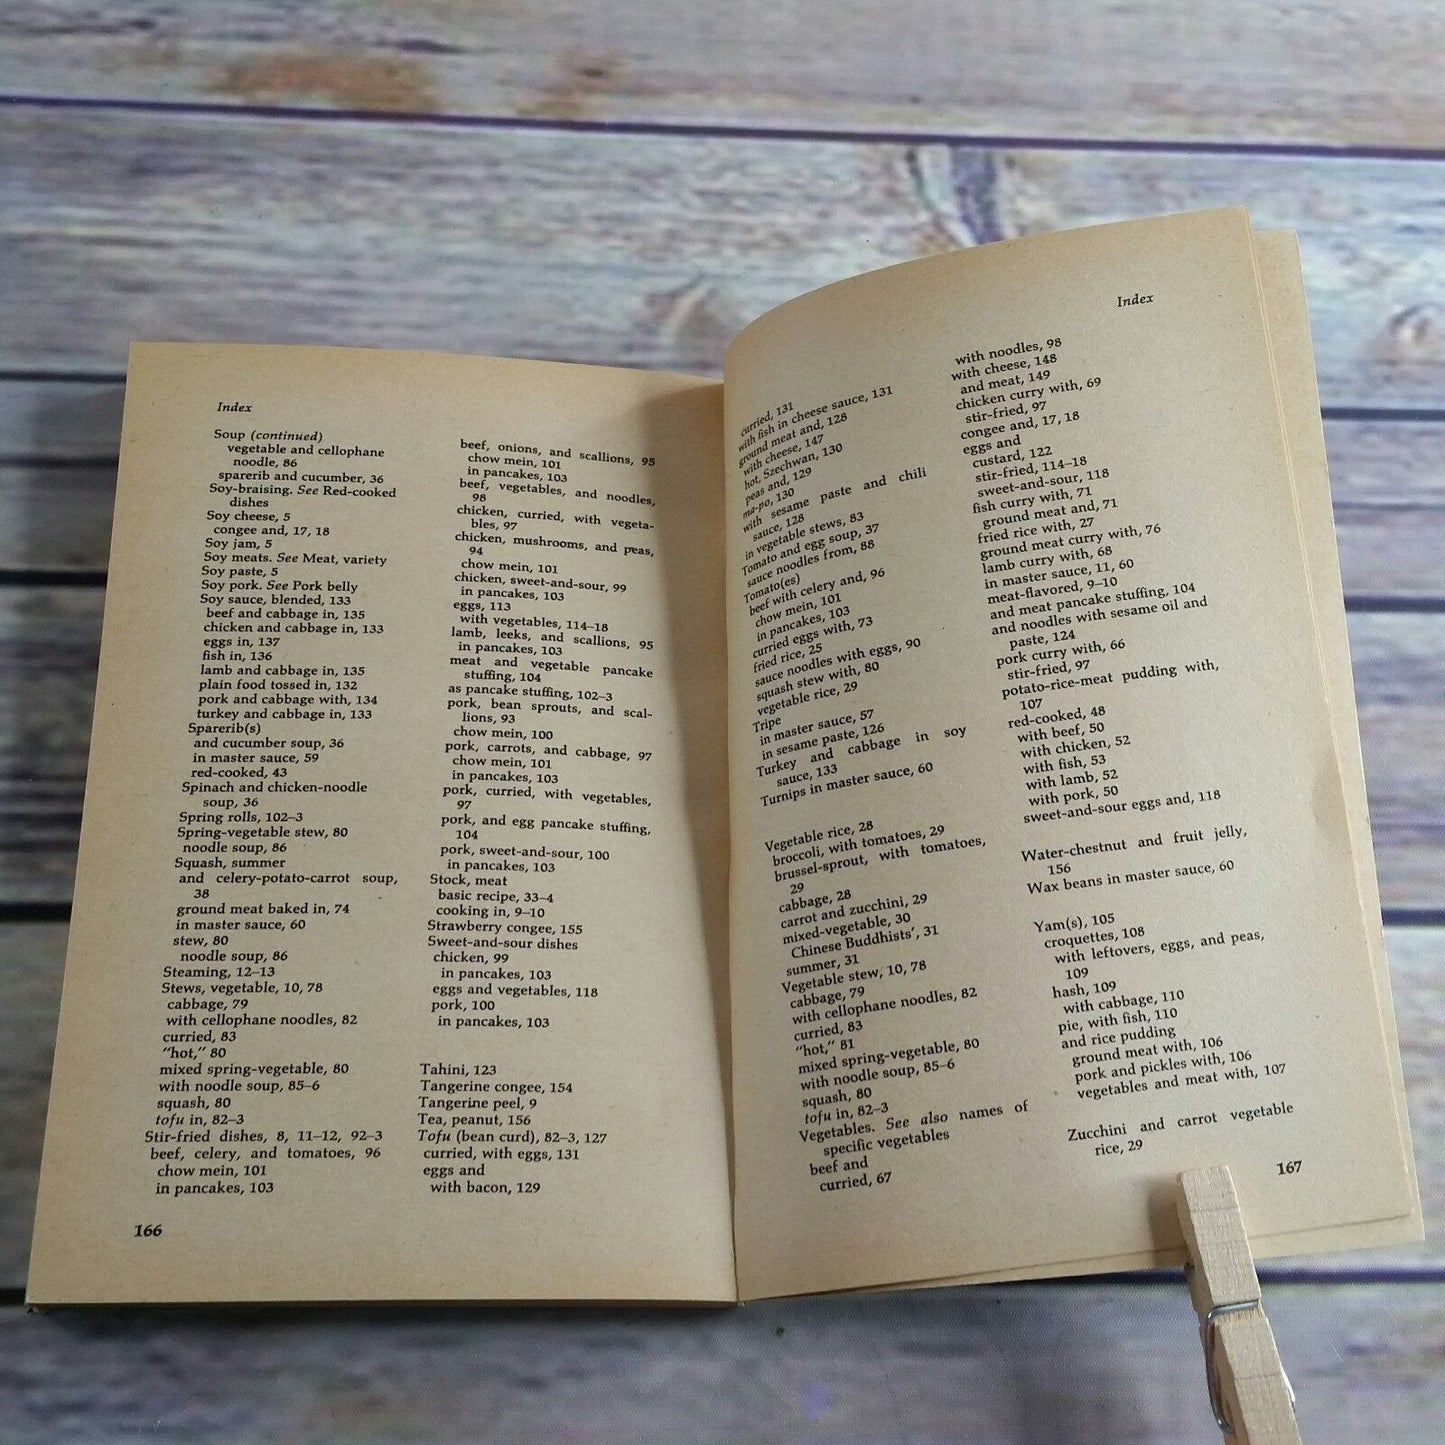 Index
Soup (continued)
vegetable and cellophane
noodle, 86
sparerib and cucumber, 36
Soy-braising. See Red-cooked
dishes
Soy cheese, 5
congee and, 17, 18
Soy jam, 5
Soy meats. See Meat, variety
Soy paste, 5
Soy pork. See Pork belly
Soy sauce, blended, 133
beef and cabbage in, 135
chicken and cabbage in, 133
eggs in, 137
fish in, 136
lamb and cabbage in, 135
plain food tossed in, 132
pork and cabbage with, 134
turkey and cabbage in, 133
Sparerib(s)
and cucumber soup, 36
in master sauce, 59
red-cooked, 43
Spinach and chicken-noodle
soup, 36
Spring rolls, 102–3
Spring-vegetable stew, 80
noodle soup, 86
Squash, summer
and celery-potato-carrot soup,
38
ground meat baked in, 74
in master sauce, 60
stew, 80
noodle soup, 86
Steaming, 12–13
Stews, vegetable, 10, 78
cabbage, 79
with cellophane noodles, 82
curried, 83
"hot," 80
mixed spring-vegetable, 80
with noodle soup, 85–6
squash, 80
tofu in, 82–3
Stir-fried dishes, 8, 11–12, 92–3
beef, celery, and tomatoes, 96
chow mein, 101
in pancakes, 103
beef, onions, and scallions, 95
chow mein, 101
in pancakes, 103
beef, vegetables, and noodles,
98
chicken, curried, with vegeta-
bles, 97
chicken, mushrooms, and peas,
94
chow mein, 101
chicken, sweet-and-sour, 99
in pancakes, 103
eggs, 113
with vegetables, 114–18
lamb, leeks, and scallions, 95
in pancakes, 103
meat and vegetable pancake
stuffing, 104
as pancake stuffing, 102–3
pork, bean sprouts, and scal-
lions, 93
chow mein, 100
pork, carrots, and cabbage, 97
chow mein, 101
in pancakes, 103
pork, curried, with vegetables,
97
pork, and egg pancake stuffing,
104
pork, sweet-and-sour, 100
in pancakes, 103
Stock, meat
basic recipe, 33–4
cooking in, 9–10
Strawberry congee, 155
Sweet-and-sour dishes
chicken, 99
in pancakes, 103
eggs and vegetables, 118
pork, 100
in pancakes, 103
Tahini, 123
Tangerine congee, 154
Tangerine peel, 9
Tea, peanut, 156
Tofu (bean curd), 82–3, 127
curried, with eggs, 131
eggs and
with bacon, 129
166
Index
curried, 131
with fish in cheese sauce, 131
ground meat and, 128
with cheese, 147
hot, Szechwan, 130
peas and, 129
ma-po, 130
with sesame paste and chili
sauce, 128
in vegetable stews, 83
Tomato and egg soup, 37
sauce noodles from, 88
Tomato(es)
beef with celery and, 96
chow mein, 101
in pancakes, 103
curried eggs with, 73
fried rice, 25
sauce noodles with eggs, 90
squash stew with, 80
vegetable rice, 29
Tripe
in master sauce, 57
in sesame paste, 126
Turkey and cabbage in soy
sauce, 133
Turnips in master sauce, 60
Vegetable rice, 28
broccoli, with tomatoes, 29
brussel-sprout, with tomatoes,
29
cabbage, 28
carrot and zucchini, 29
mixed-vegetable, 30
Chinese Buddhists', 31
summer, 31
Vegetable stew, 10, 78
cabbage, 79
with cellophane noodles, 82
curried, 83
"hot," 81
mixed spring-vegetable, 80
with noodle soup, 85–6
squash, 80
tofu in, 82–3
Vegetables. See also names of
specific vegetables
beef and
curried, 67
with noodles, 98
with cheese, 148
and meat, 149
chicken curry with, 69
stir-fried, 97
congee and, 17, 18
eggs and
custard, 122
stir-fried, 114–18
sweet-and-sour, 118
fish curry with, 71
ground meat and, 71
fried rice with, 27
ground meat curry with, 76
lamb curry with, 68
in master sauce, 11, 60
meat-flavored, 9–10
and meat pancake stuffing, 104
and noodles with sesame oil and
paste, 124
pork curry with, 66
stir-fried, 97
potato-rice-meat pudding with,
107
red-cooked, 48
with beef, 50
with chicken, 52
with fish, 53
with lamb, 52
with pork, 50
sweet-and-sour eggs and, 118
Water-chestnut and fruit jelly,
156
Wax beans in master sauce, 60
Yam(s), 105
croquettes, 108
with leftovers, eggs, and peas,
109
hash, 109
with cabbage, 110
pie, with fish, 110
and rice pudding
ground meat with, 106
pork and pickles with, 106
vegetables and meat with, 107
Zucchini and carrot vegetable
rice, 29
167